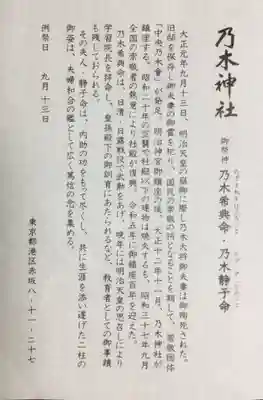 乃木神社
御祭神 乃木希典命・乃木静子命
大正元年九月十三日、明治天皇の崩御に際し乃木大将御夫妻は御殉死された。
旧邸を保存し御夫妻の御霊を祀り、国民の崇敬の所となることを期して、崇敬団体
「中央乃木會」が発足、明治神宮御鎮座の後、大正十二年十一月、乃木神社が
鎮座する。昭和二十年の空襲で社殿以下の建物は焼失するも、昭和三十七年九月
全国の崇敬者の熱意により社殿が復興、令和五年に御鎮座百年を迎えた。
乃木希典命は、日清、日露戦役で武勲をあげ、晩年には明治天皇の思召しにより
学習院長を拝命し、皇孫殿下の御訓育にあたられるなど、教育者としての御事蹟
も残しておられる。
その夫人・静子命は、内助の功をもって尽くし、共に生涯を添い遂げた二柱の
御姿は、夫婦和合の鑑として広く篤信の念を集める。
例祭日 九月十三日
東京都港区赤坂八-十一-二十七